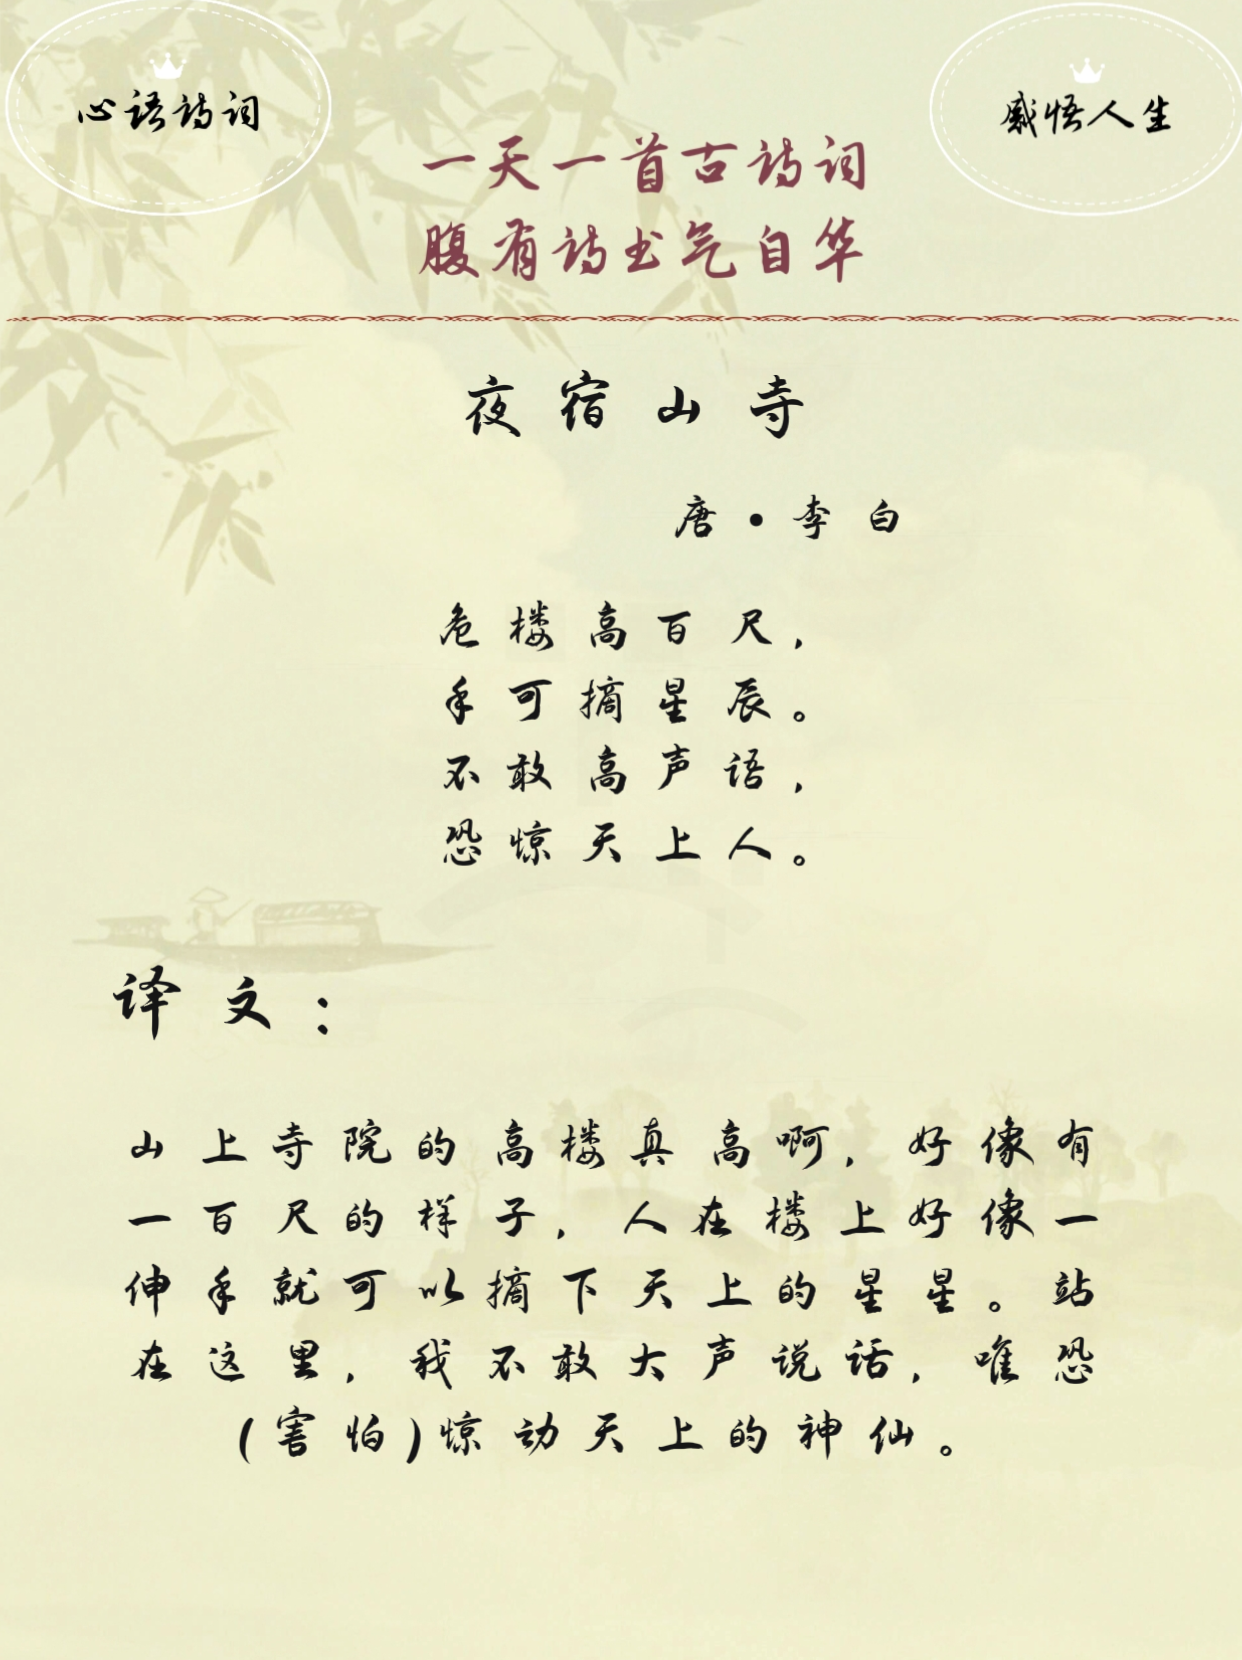 心语诗词
感悟人生
一天一首古诗词
腹有诗书气自华
夜宿山寺
唐·李白
危楼高百尺，
手可摘星辰。
不敢高声语，
恐惊天上人。
译文：
山上寺院的高楼真高啊，好像有
一百尺的样子，人在楼上好像一
伸手就可以摘下天上的星星。站
在这里，我不敢大声说话，唯恐
(害怕)惊动天上的神仙。